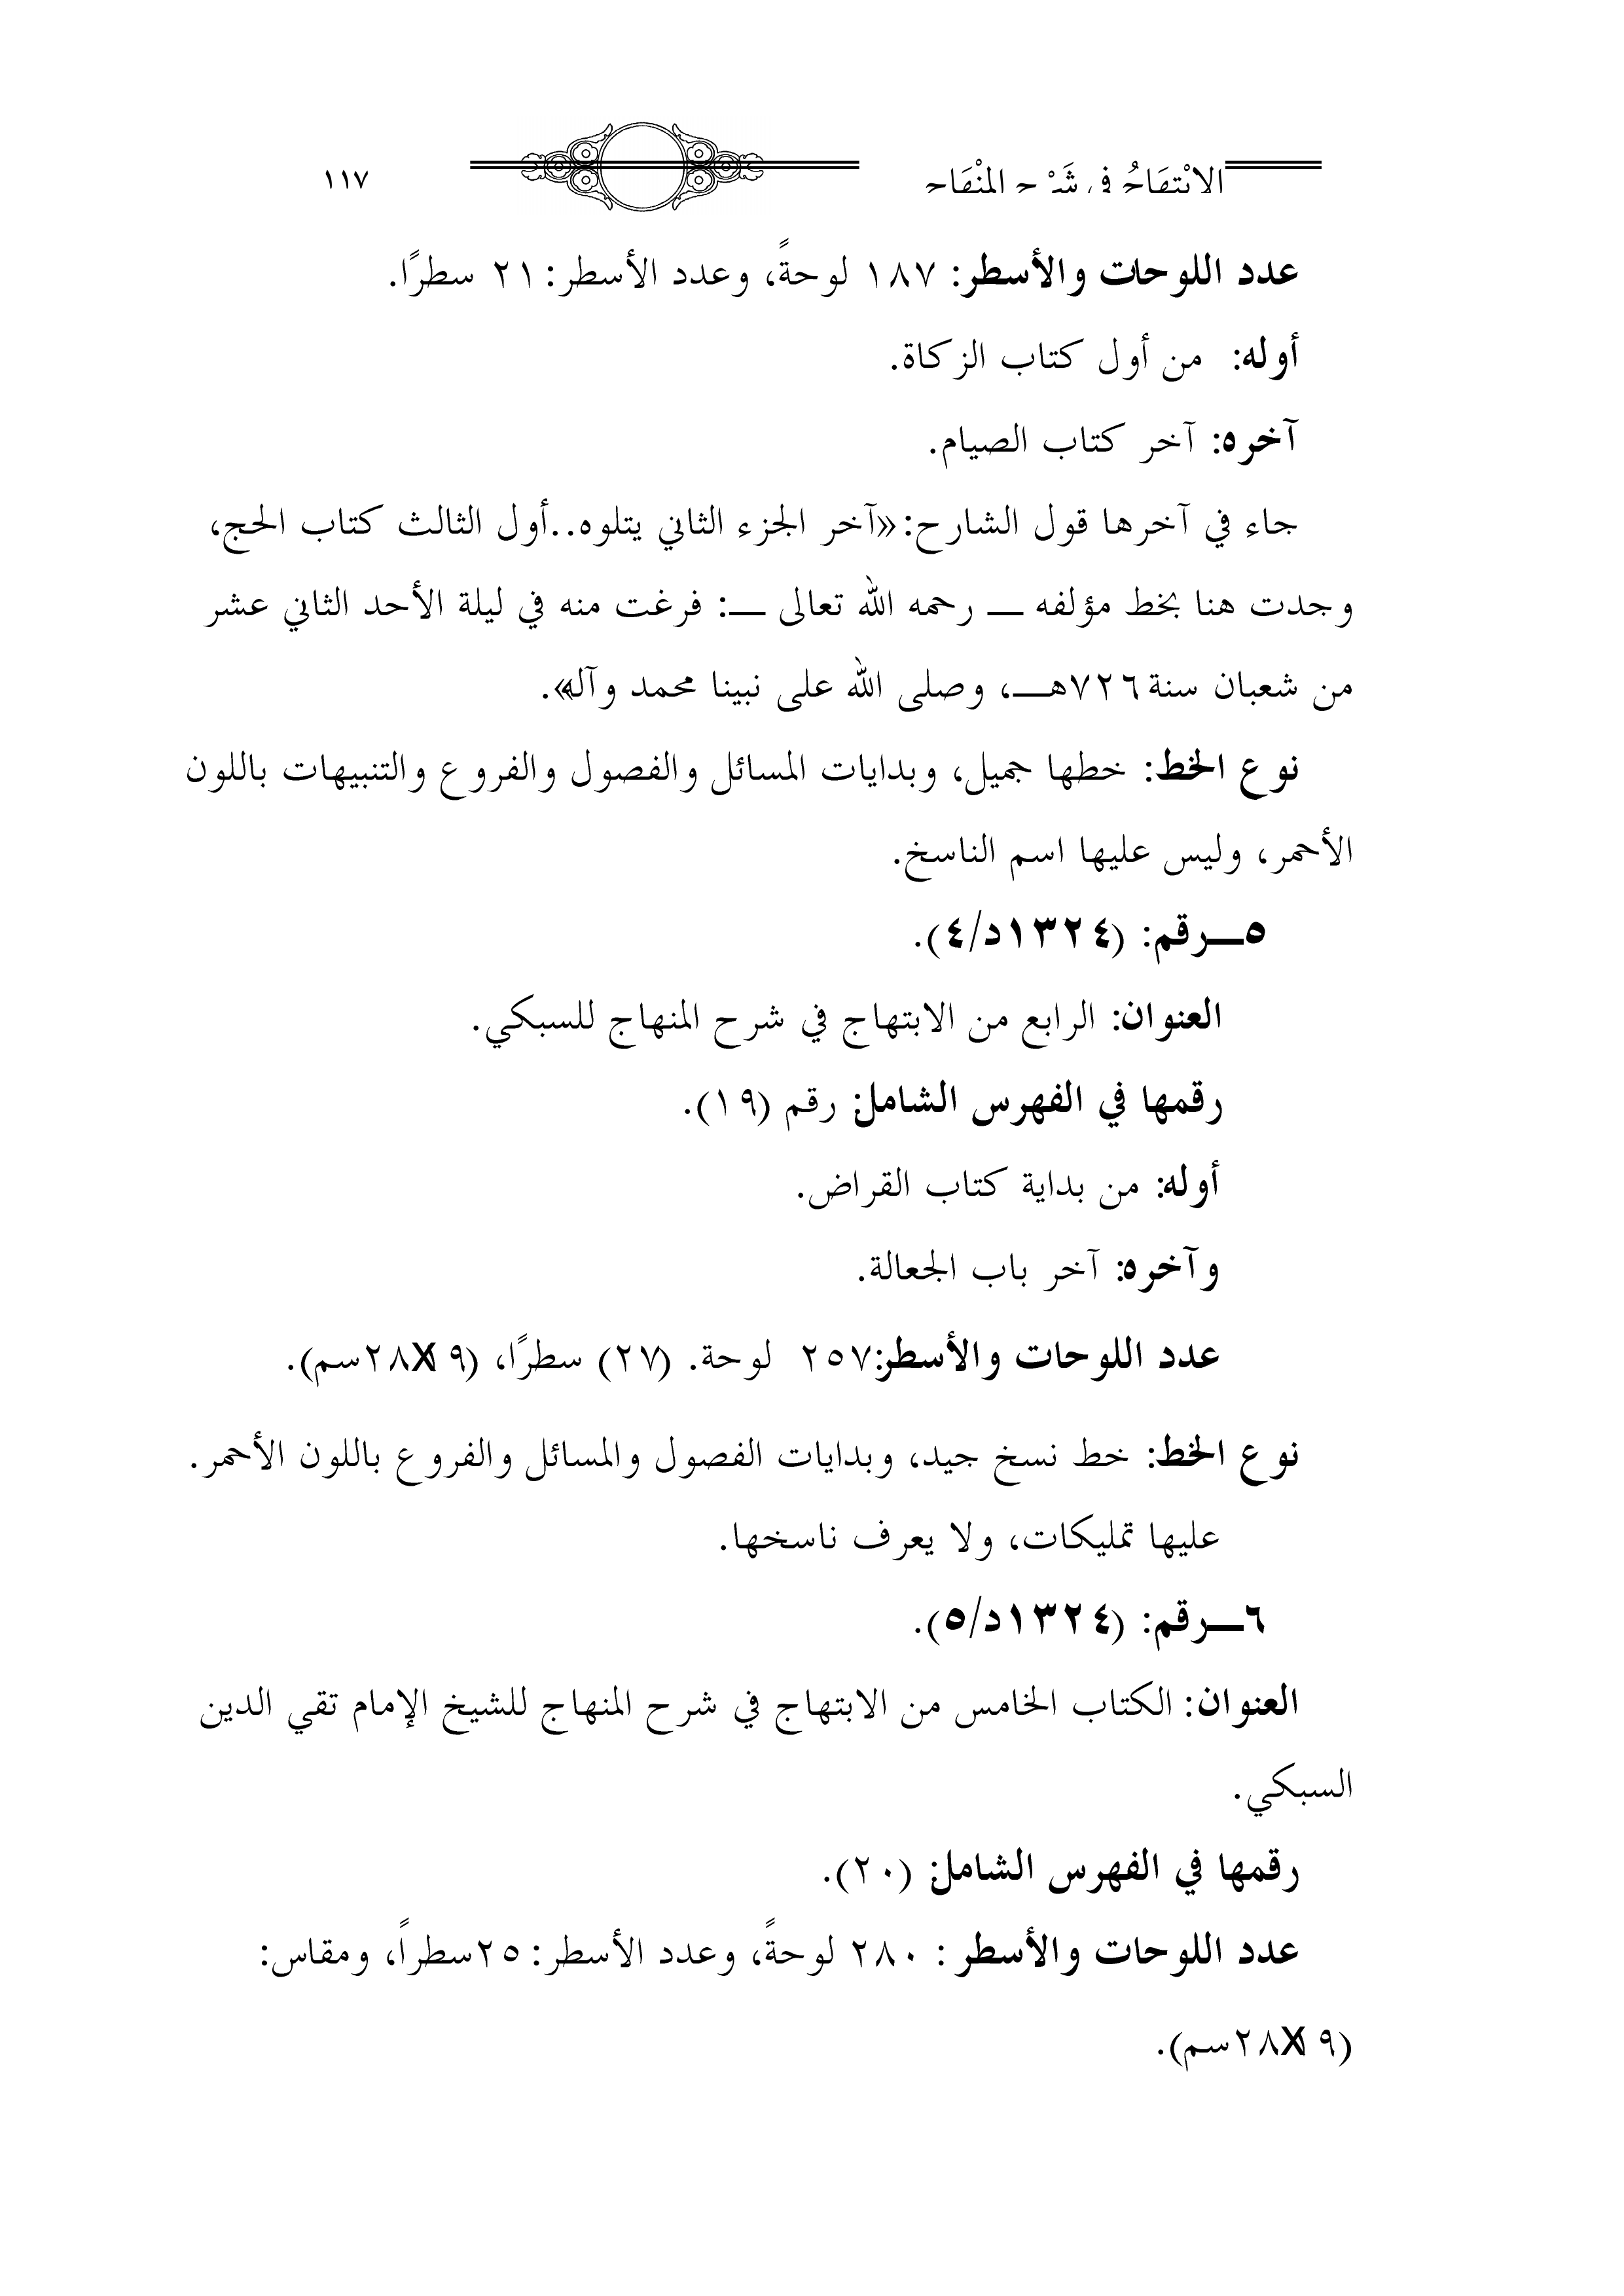 الابْتِهَاجُ في شَرْحِ المِنْهَاجِ ١١٧
عدد اللوحات والأسطر: ١٨٧ لوحةً، وعدد الأسطر: ٢١ سطرًا.
أوله: من أول كتاب الزكاة.
آخره: آخر كتاب الصيام.
جاء في آخرها قول الشارح: «آخر الجزء الثاني يتلوه..أول الثالث كتاب الحج،
وجدت هنا بخط مؤلفه ـــ رحمه الله تعالى ـــ: فرغت منه في ليلة الأحد الثاني عشر
من شعبان سنة ٧٢٦هـــ، وصلى الله على نبينا محمد وآله».
نوع الخط: خطها جميل، وبدايات المسائل والفصول والفروع والتنبيهات باللون
الأحمر، وليس عليها اسم الناسخ.
٥ـــرقم: (١٣٢٤د/٤).
العنوان: الرابع من الابتهاج في شرح المنهاج للسبكي.
رقمها في الفهرس الشامل: رقم (١٩).
أوله: من بداية كتاب القراض.
وآخره: آخر باب الجعالة.
عدد اللوحات والأسطر:٢٥٧ لوحة. (٢٧) سطرًا، (١٩X٢٨سم).
نوع الخط: خط نسخ جيد، وبدايات الفصول والمسائل والفروع باللون الأحمر.
عليها تمليكات، ولا يعرف ناسخها.
٦ـــرقم: (١٣٢٤د/٥).
العنوان: الكتاب الخامس من الابتهاج في شرح المنهاج للشيخ الإمام تقي الدين
السبكي.
رقمها في الفهرس الشامل: (٢٠).
عدد اللوحات والأسطر : ٢٨٠ لوحةً، وعدد الأسطر: ٢٥سطراً، ومقاس:
(١٩X٢٨سم).